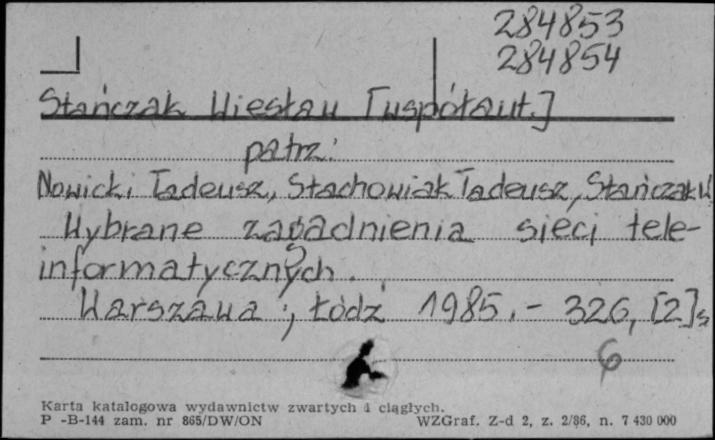 284853
284854
Stańczak Wiesław [współaut.]
patrz:
Nowicki Tadeusz, Stachowiak Tadeusz, Stańczak W
Wybrane zagadnienia sieci tele-
informatycznych.
Warszawa ; Łódź 1985. - 326, [2] s
6
Karta katalogowa wydawnictw zwartych i ciągłych.
P -B-144 zam. nr 865/DW/ON WZGraf. Z-d 2, z. 2/86, n. 7 430 000